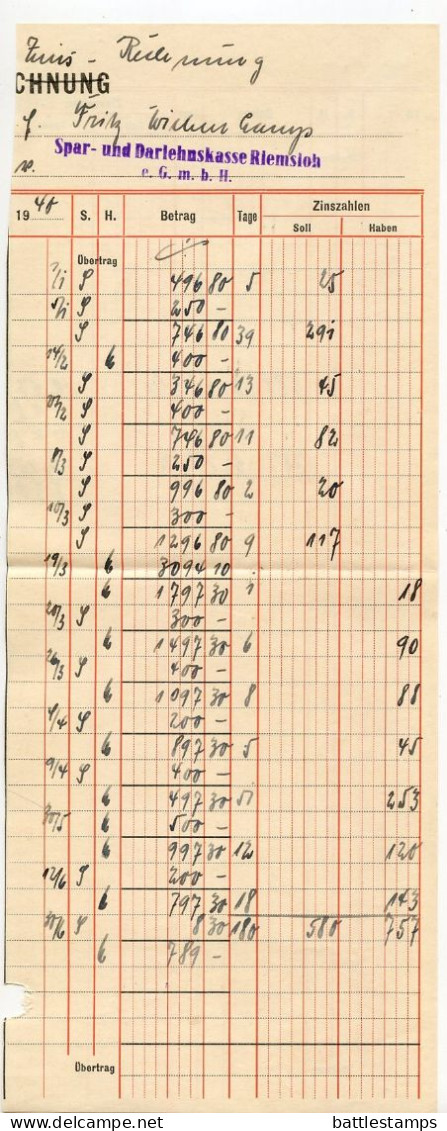 Zins - Rechnung
CHNUNG
f. Fritz
Spar- und Darlehnskasse Riemsloh
e. G. m. b. H.
19 40 S. H. Betrag Tage Zinszahlen
Soll Haben
Übertrag
2/1 S 496 80 5 25
5/1 S 250 -
S 746 80 39 291
14/2 H 400 -
S 346 80 13 45
S 400 -
S 746 80 11 82
8/3 S 250 -
S 996 80 2 20
10/3 S 300 -
S 1296 80 9 117
19/3 H 3094 10
H 1797 30 1 18
20/3 S 300 -
H 1497 30 6 90
26/3 S 400 -
H 1097 30 8 88
4/4 S 200 -
H 897 30 5 45
9/4 S 400 -
H 497 30 51 253
30/5 H 500 -
H 997 30 12 120
12/6 S 200 -
H 797 30 18 143
30/6 S 8 30 180 580 757
H 789 -
Übertrag
delcampe.net
battlestamps